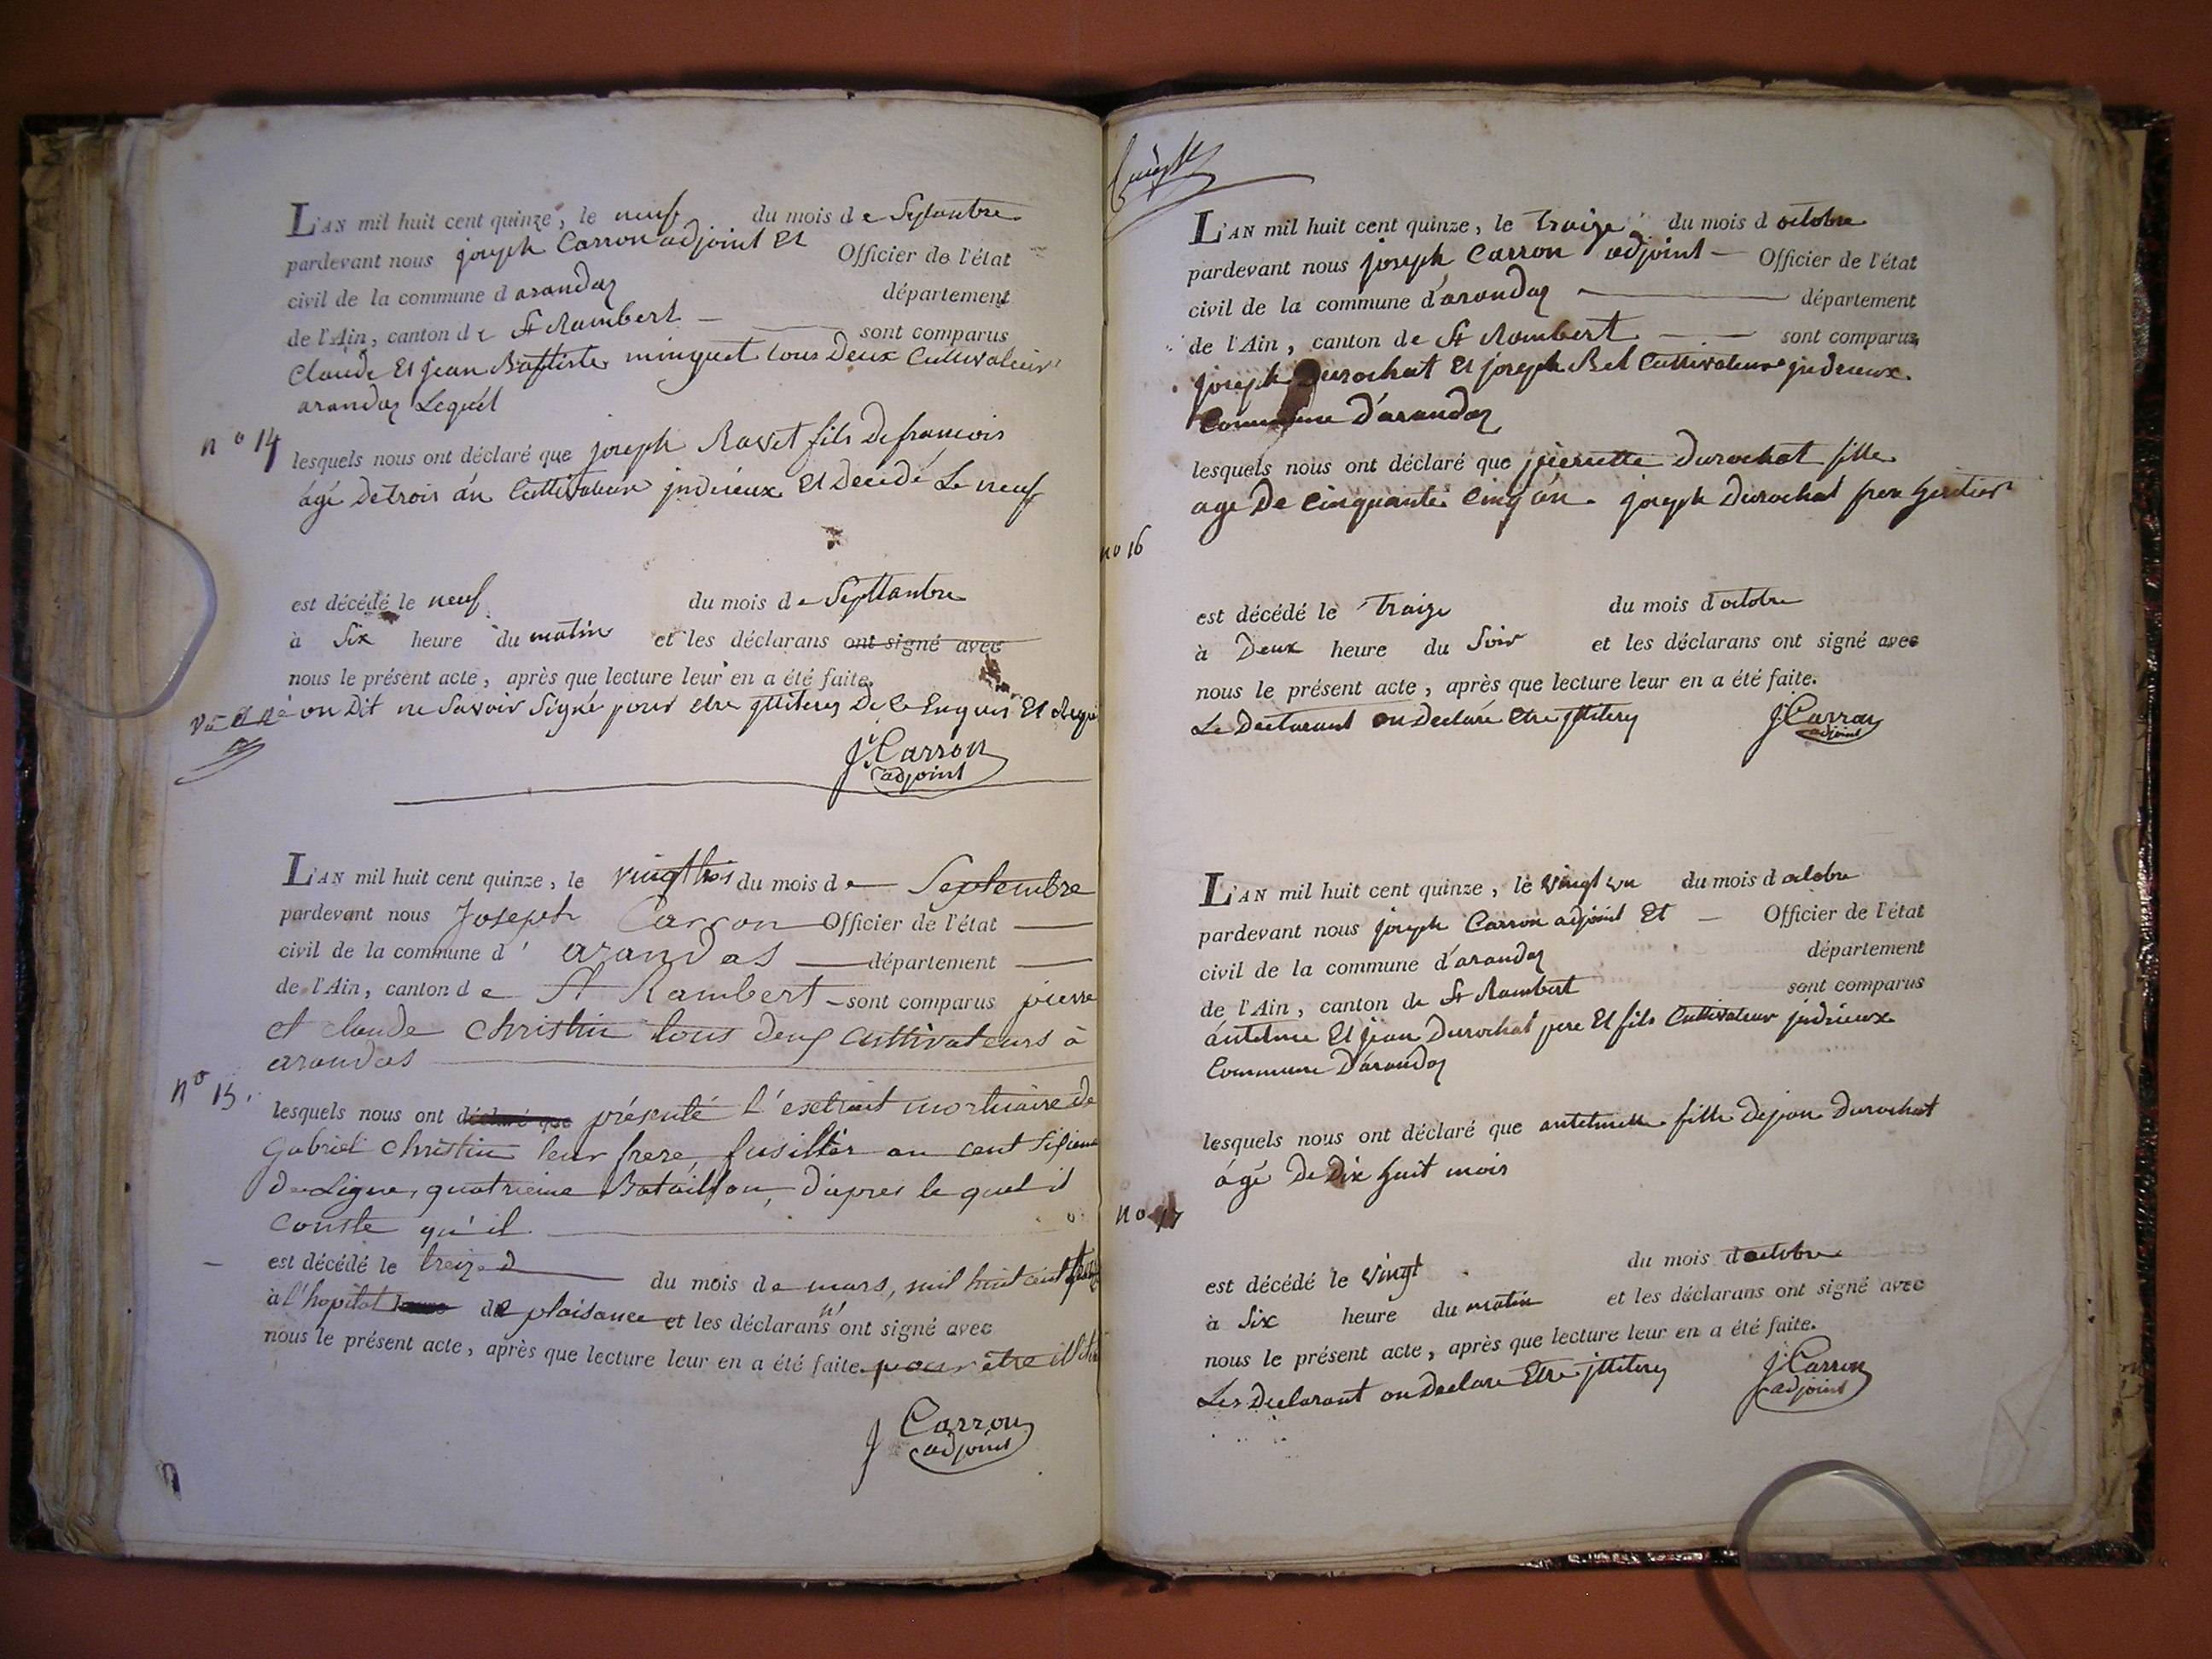 L'AN mil huit cent quinze, le neuf du mois de Septantre
pardevant nous joseph Carron adjoint Et Officier de l'état
civil de la commune d arandaz département
de l'Ain, canton de St Rambert sont comparus
Claude Et jean Baptiste minquet tous Deux Cultivateur
arandaz Lequél
n° 14
lesquels nous ont déclaré que joseph Ravet fils De francois
âgé De trois án Cultivateur judrieux Et Décédé Le neuf
est décédé le neuf du mois de Septtantre
à Six heure du matin et les déclarans ont signé avec
nous le présent acte, après que lecture leur en a été faite.
on Dit ne Savoir Signé pour Etre jllitery De Ce Enquis Et Requi
J. Carron
adjoint
L'AN mil huit cent quinze, le vingt trois du mois de Septembre
pardevant nous Joseph Carron Officier de l'état
civil de la commune d' arandas département
de l'Ain, canton de St Rambert sont comparus pierre
et claude Christin tous deux cultivateurs à
arandas
n° 15.
lesquels nous ont déclaré que présenté l'extrait mortuaire de
Gabriel Christin leur frere, fusillér au cent sixieme
de Ligne, quatrieme Bataillon, d'après le quel il
conste qu'il
est décédé le treize du mois de mars, mil huit cent
à l'hopital de plaisance et les déclarans n'ont signé avec
nous le présent acte, après que lecture leur en a été faite. pour être
J Carron
adjoint
L'AN mil huit cent quinze, le Traize du mois d octobre
pardevant nous joseph Carron adjoint Officier de l'état
civil de la commune d'arandaz département
de l'Ain, canton de St Rambert sont comparus
joseph Durochat Et joseph Bel Cultivateur judrieux
Commune D'arandaz
lesquels nous ont déclaré que pierrette Durochat fille
age De Cinquante Cinq án. joseph Durochat frere heritier
no 16
est décédé le Traize du mois d octobre
à Deux heure du Soir et les déclarans ont signé avec
nous le présent acte, après que lecture leur en a été faite.
Le Declarant on Declaré Etre jllitery
J. Carron
adjoint
L'AN mil huit cent quinze, le vingt un du mois d octobre
pardevant nous joseph Carron adjoint Et Officier de l'état
civil de la commune d'arandaz département
de l'Ain, canton de St Rambert sont comparus
antelme Et jean Durochat pere Et fils Cultivateur judrieux
Commune D'arandaz
lesquels nous ont déclaré que antelmette fille De jean Durochat
âgé De Dix huit mois
no 17
est décédé le vingt du mois d octobre
à Six heure du matin et les déclarans ont signé avec
nous le présent acte, après que lecture leur en a été faite.
Les Declarant on Declare Etre jllitery
J. Carron
adjoint